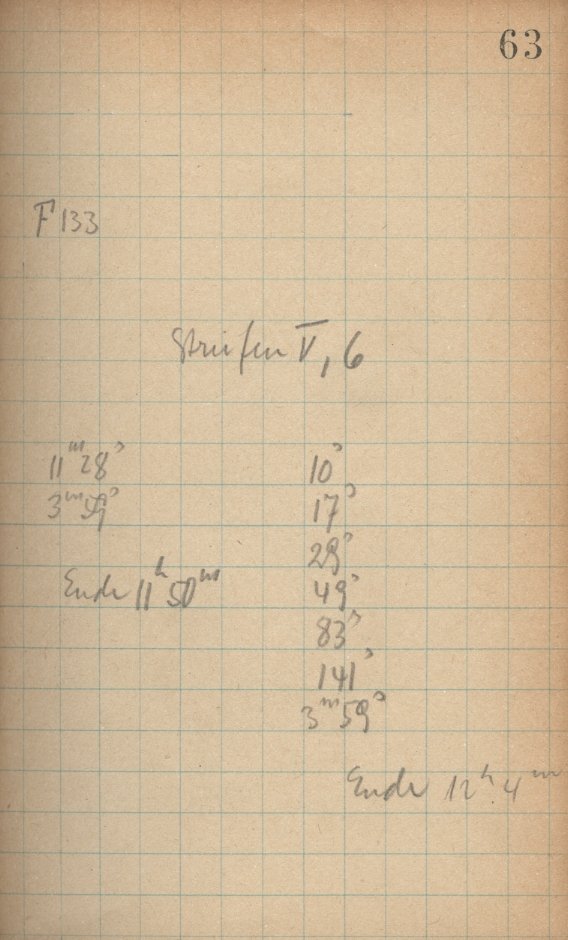 63
F 133
Streifen V, 6
11ᵐ 28ˢ
3ᵐ 59ˢ
Ende 11ʰ 50ᵐ
10ˢ
17ˢ
29ˢ
49ˢ
83ˢ
141ˢ
3ᵐ 59ˢ
Ende 12ʰ 4ᵐ